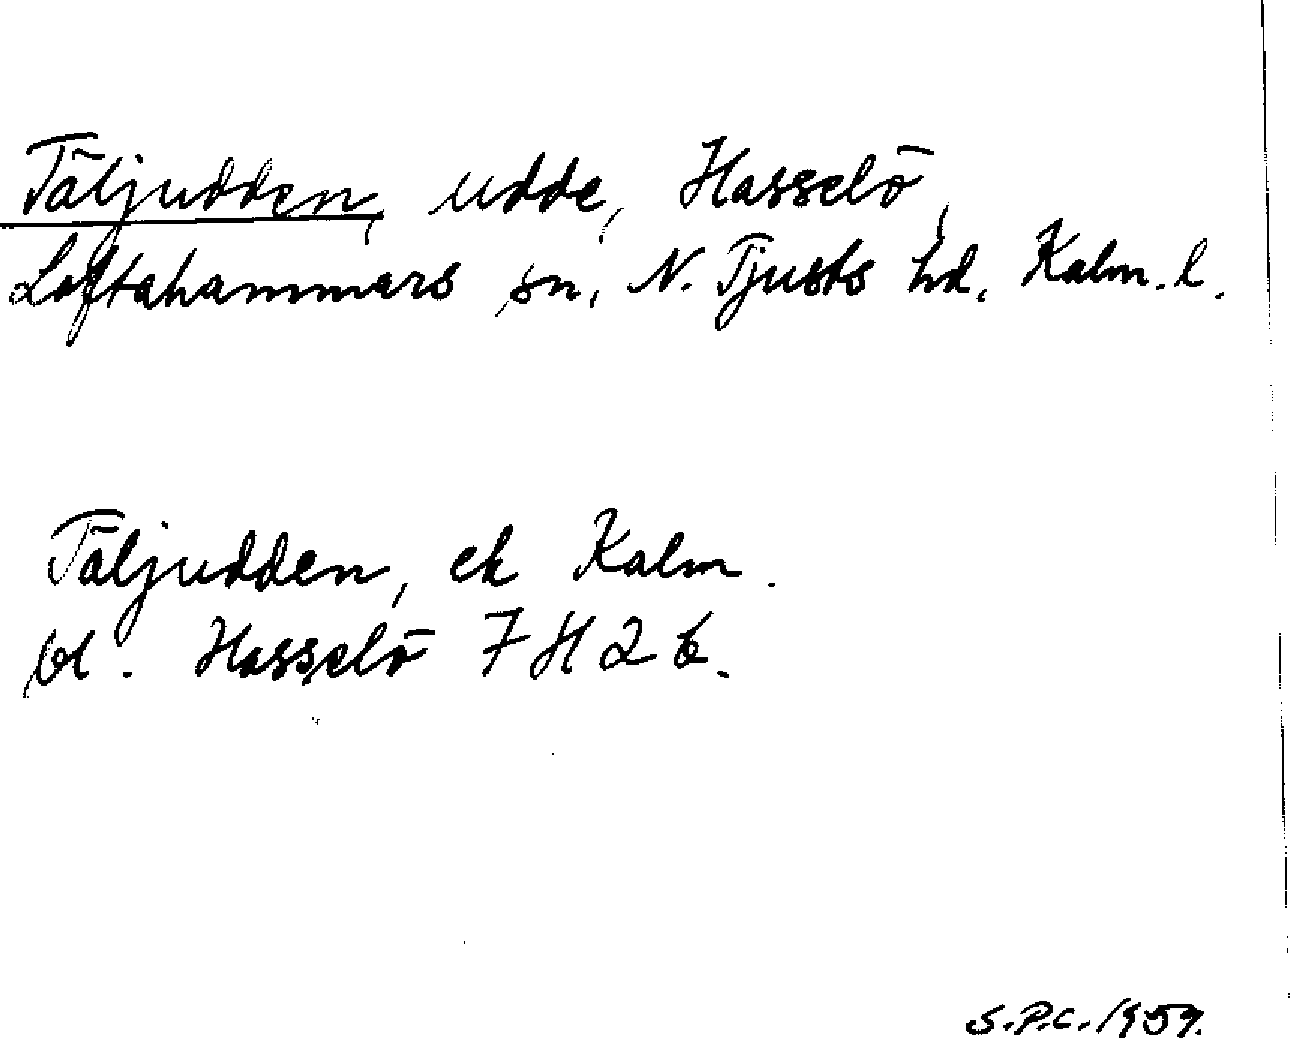 Täljudden, udde, Hasselö,
Loftahammars sn, N. Tjusts hd, Kalm. l.
Täljudden, ek Kalm.
bl. Hasselö 7 H 2 b.
S.P.C. 1959.